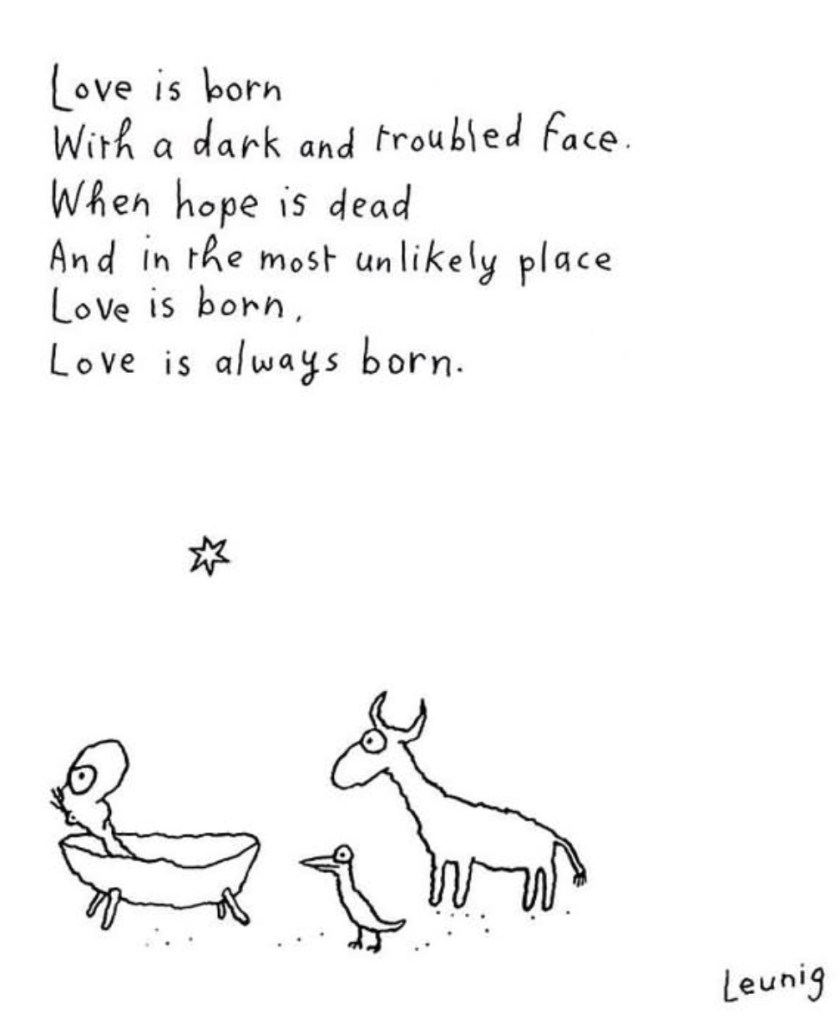 Love is born
With a dark and troubled face.
When hope is dead
And in the most unlikely place
Love is born,
Love is always born.
Leunig